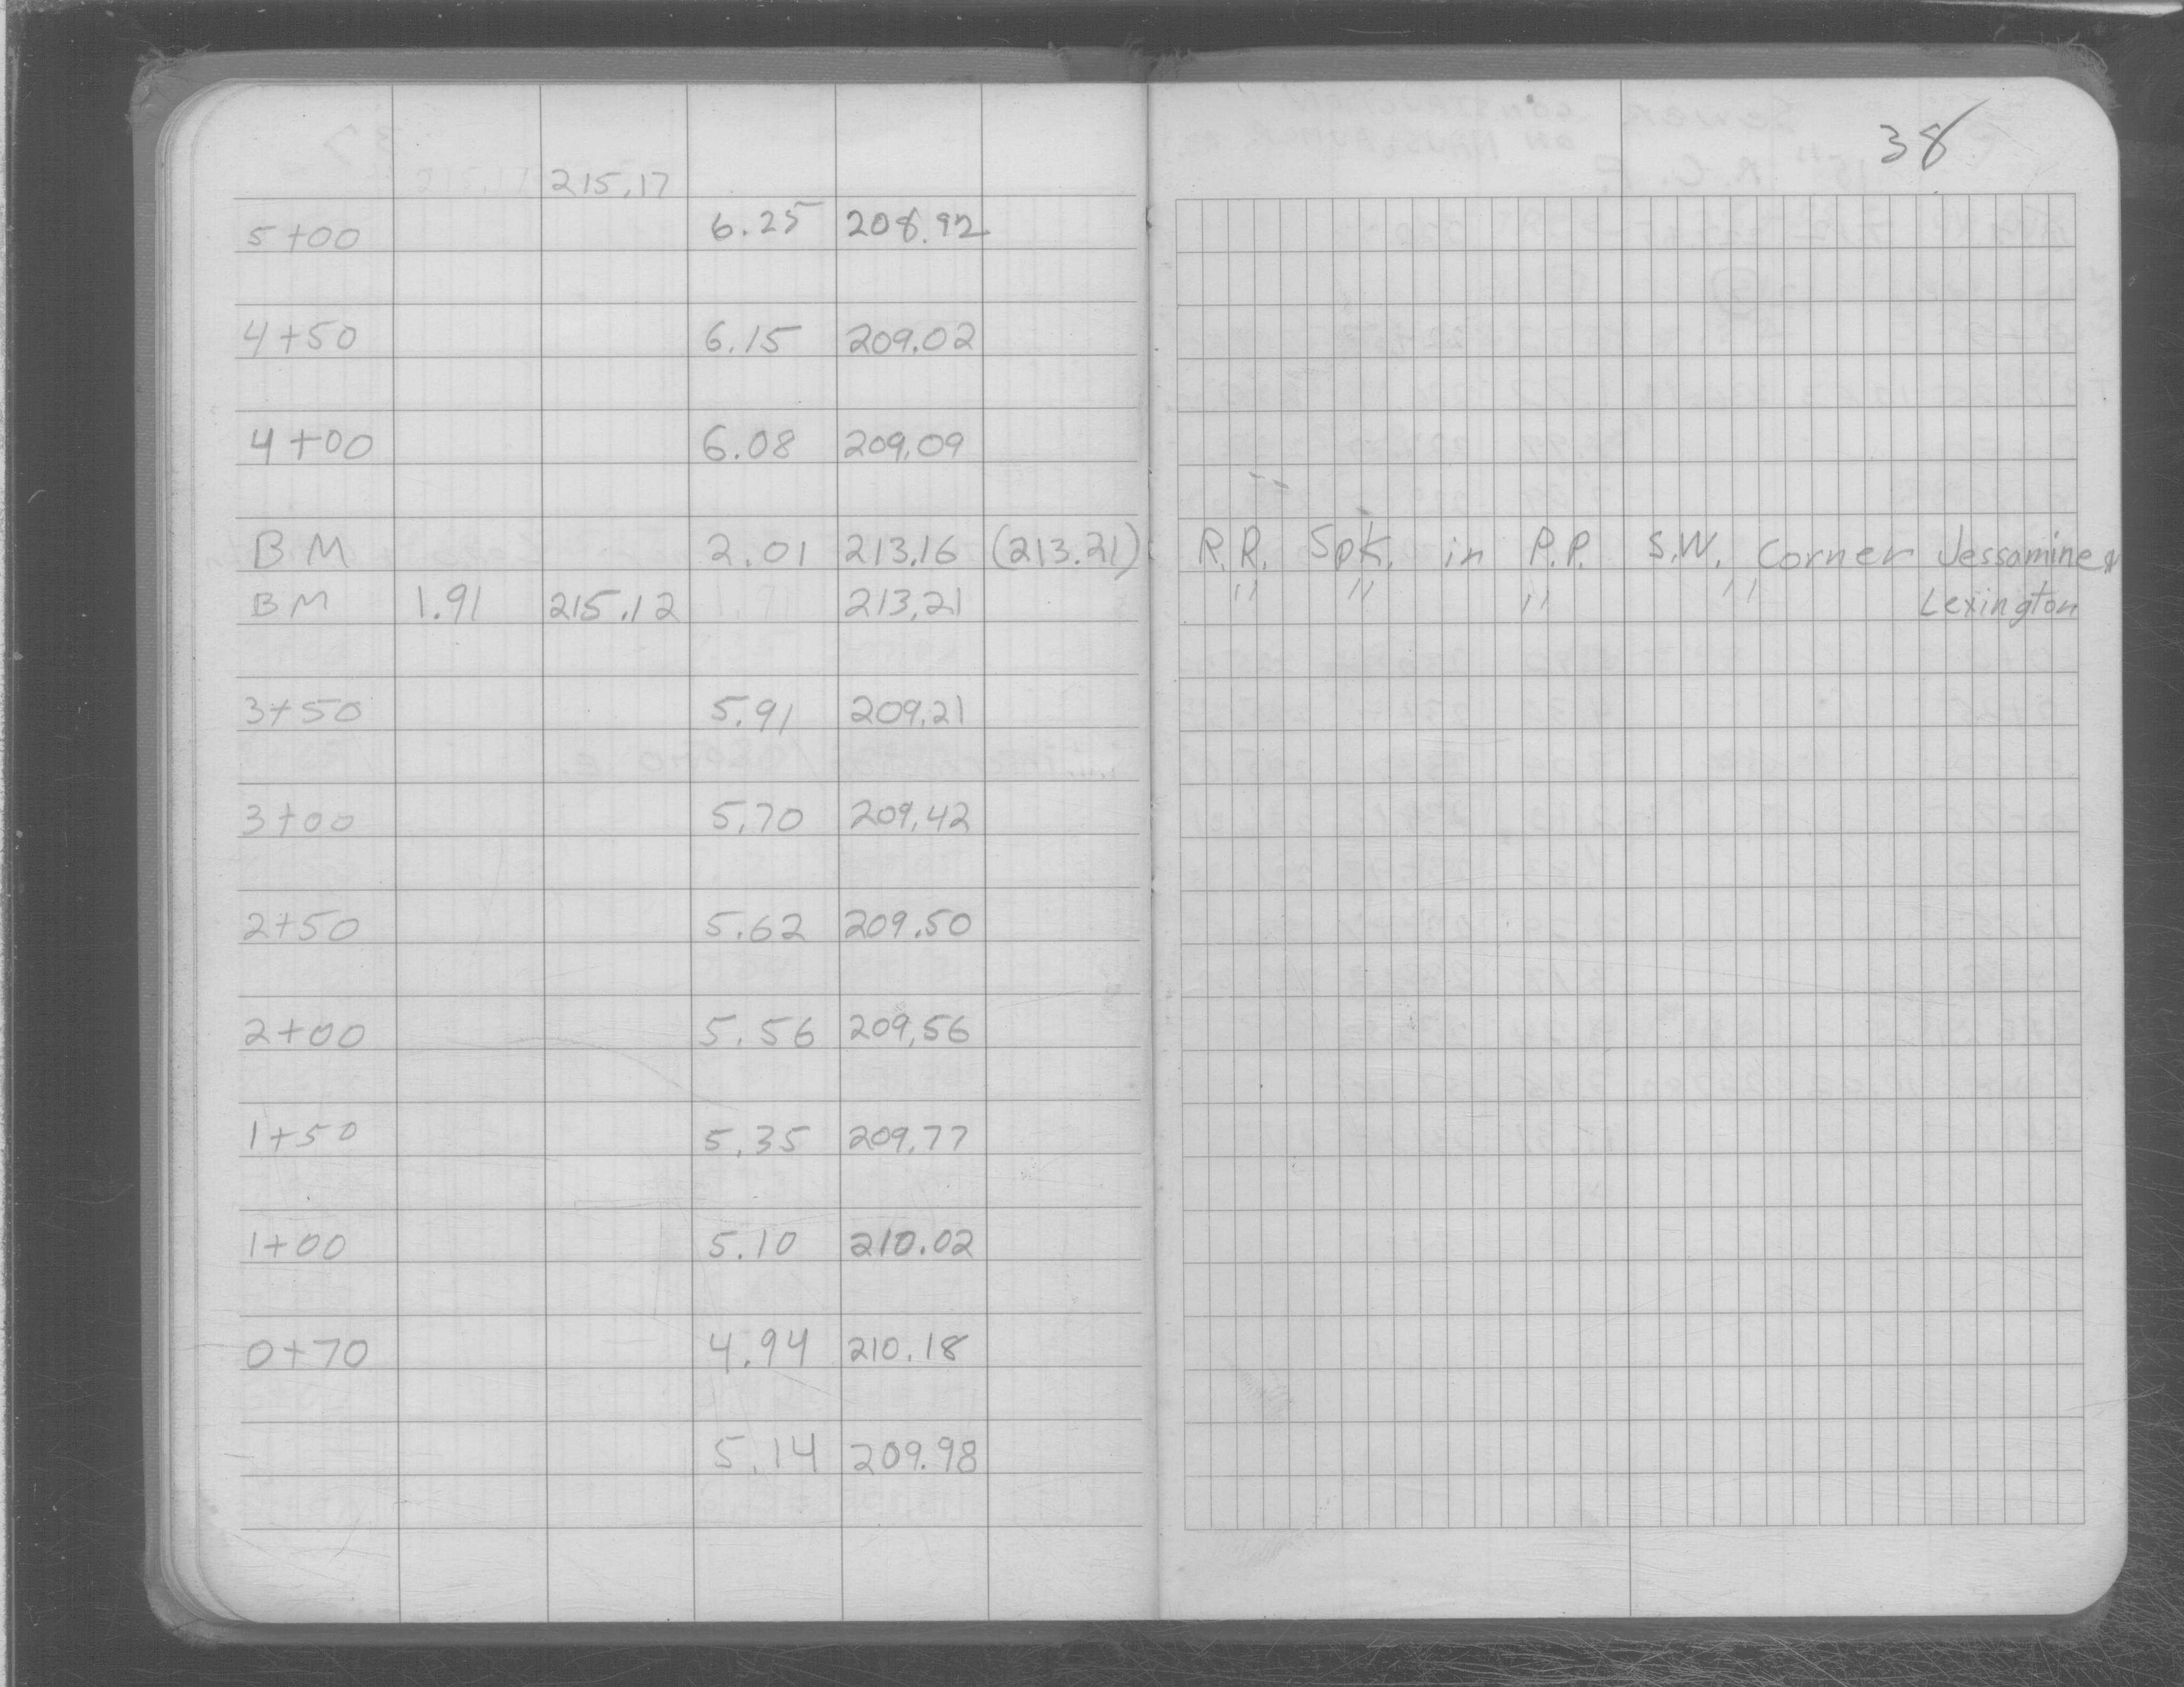 38
215.17
5+00 6.25 208.92
4+50 6.15 209.02
4+00 6.08 209.09
BM 2.01 213.16 (213.21) R.R. Spk. in P.P. S.W. Corner Jessamine &
BM 1.91 215.12 213.21 " " " " Lexington
3+50 5.91 209.21
3+00 5.70 209.42
2+50 5.62 209.50
2+00 5.56 209.56
1+50 5.35 209.77
1+00 5.10 210.02
0+70 4.94 210.18
5.14 209.98